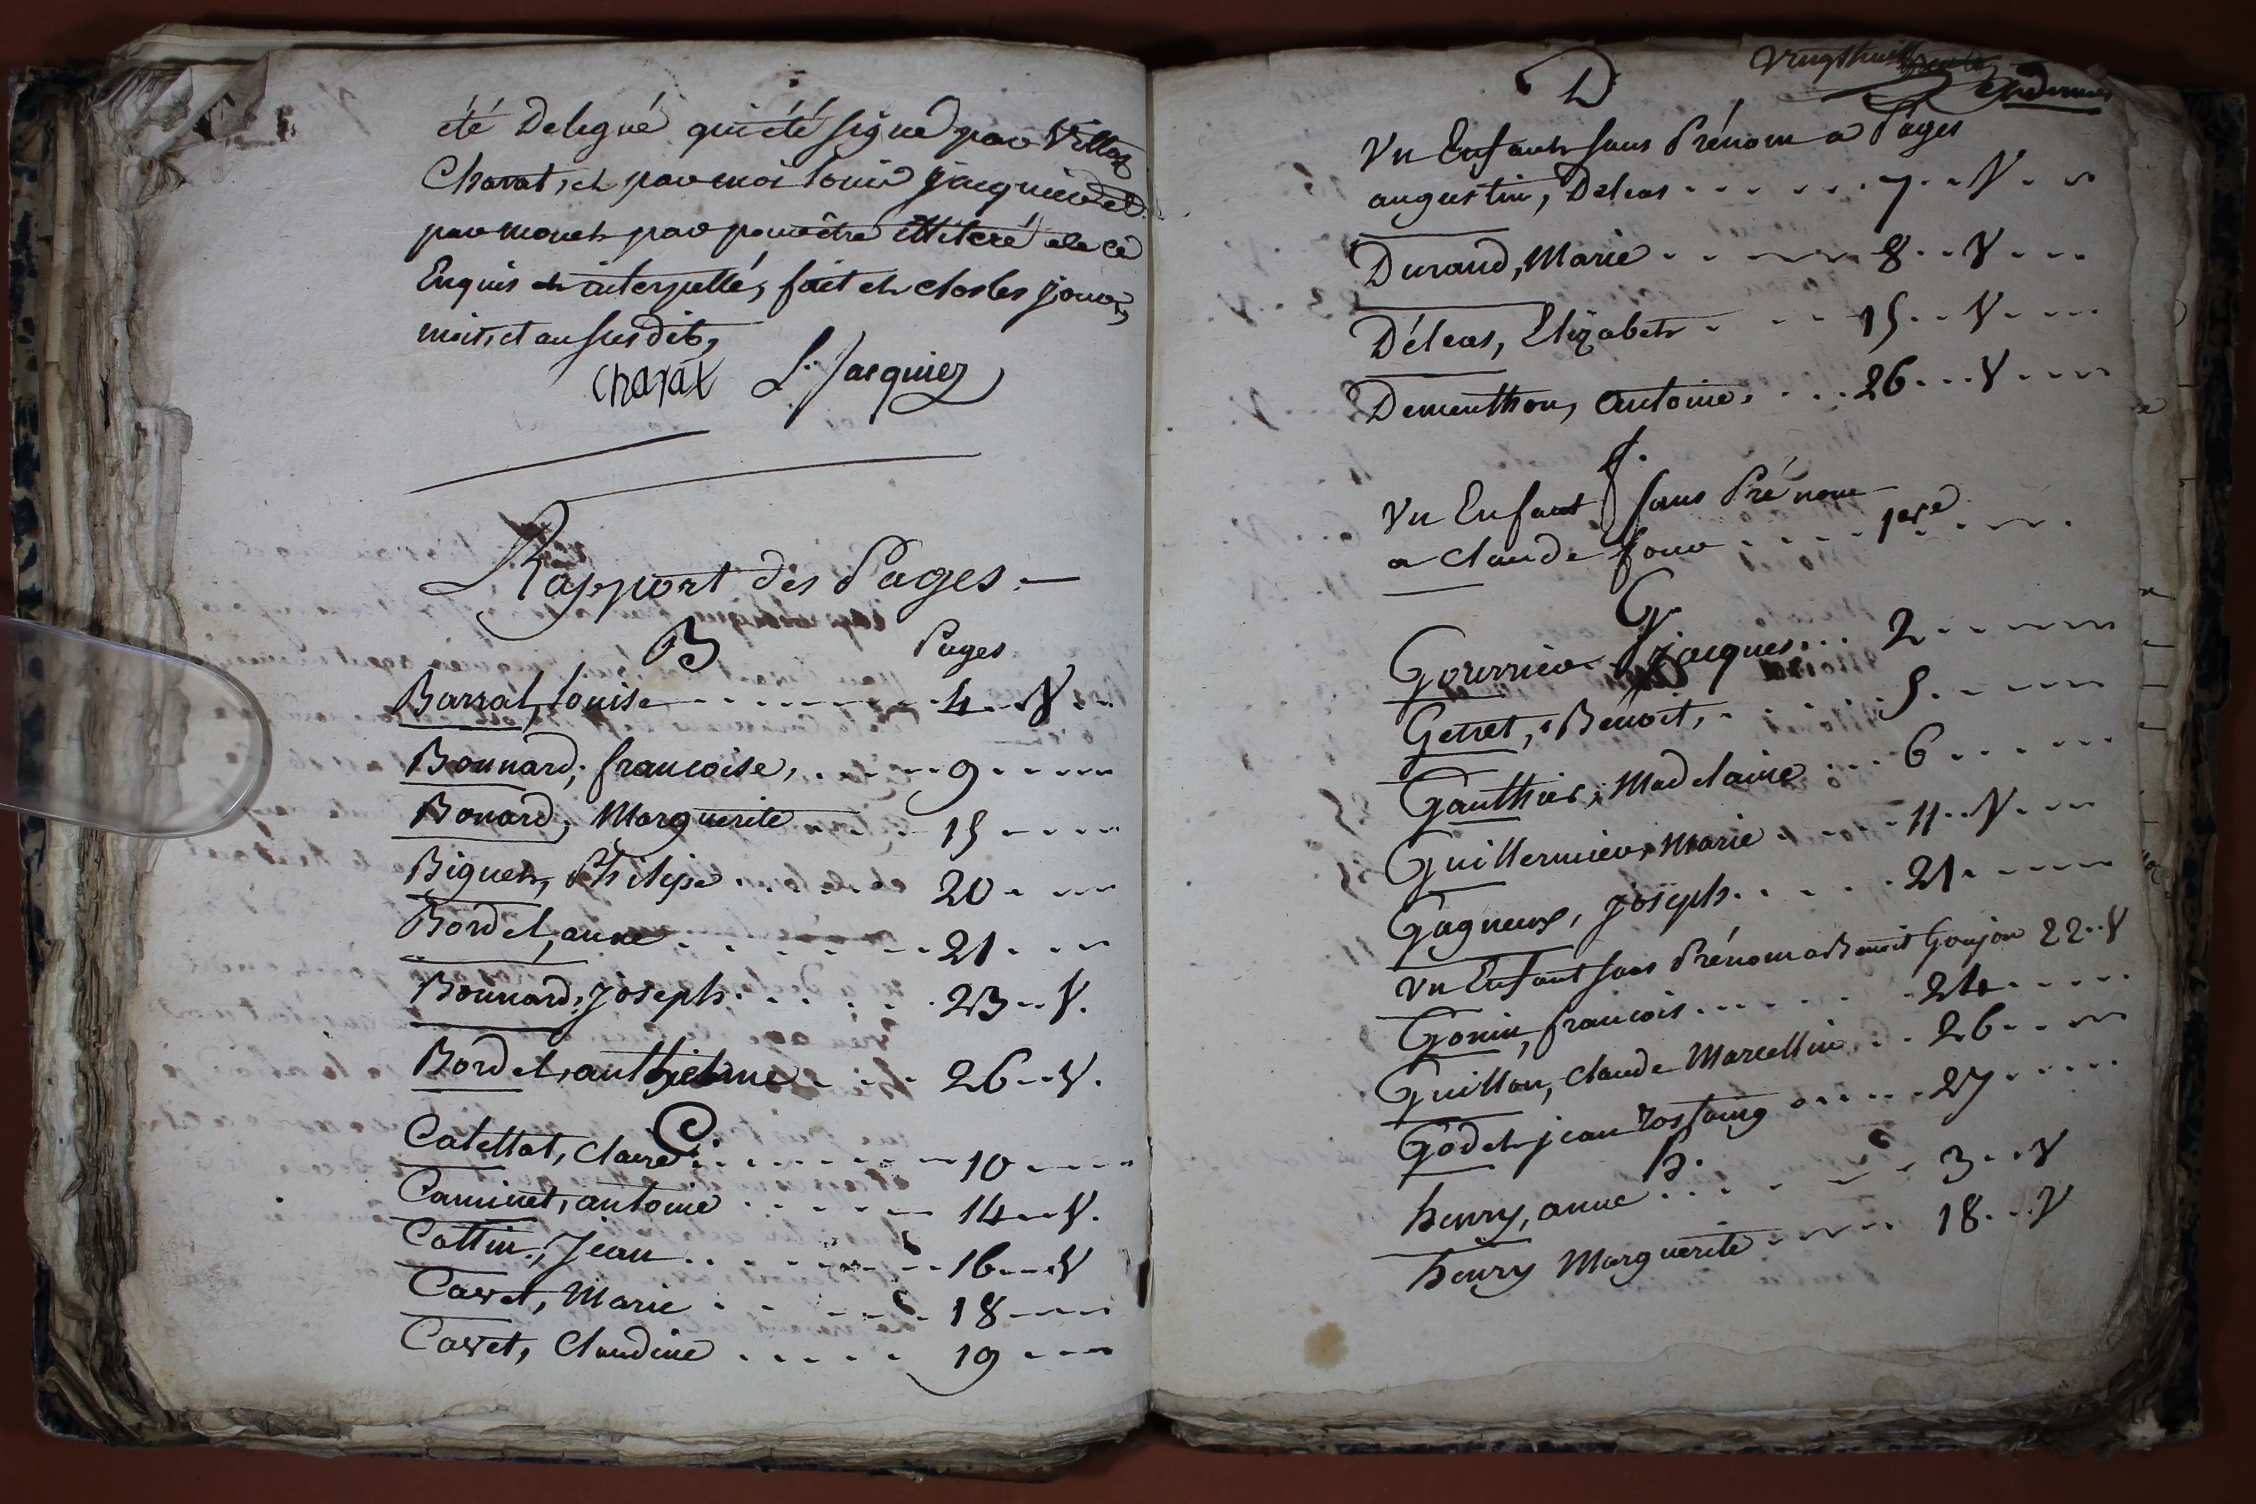 été Delegué qui été signé par Villas
Charat, et par moi louis jacquier et
par monet par pouvêtre ittiteré de ce
Enquis et interpellé, fait et clos les jour,
mois, et an susdits,
Charat L. Jacquier
Rapport des Pages
B Pages
Barral, louise 4 V
Bonnard, francoise, 9
Bonard, Marguerite 15
Biguet, Philipe 20
Bordel, anne 21
Bonnard, joseph 23 V
Bordel, anthelme 26 V
C
Catettat, Claire 10
Caminet, antoine 14 V
Cottin, Jean 16 V
Cavet, Marie 18
Cavet, Claudine 19
Vingthuit
D
Vn Enfant sans Prénom a Pages
augustin, Deleas 7 V
Durand, Marie 8 V
Déleas, Elizabeth 15 V
Dementhon, antoine 26 V
f.
Vn Enfant sans Prénom
a Claude four 1ere
G
Gourrier jacques 2
Getret, Benoit, 5
Gauthier, Madelaine 6
Guillermier, Marie 11 V
Gagneux, joseph 21
Vn Enfant sans Prénom a Benoit Goujon 22 V
Gonin, francois 24
Guillon, Claude Marcellin 26
Godet jean Rostaing 27
h.
henry, anne 3 V
henry Marguerite 18 V